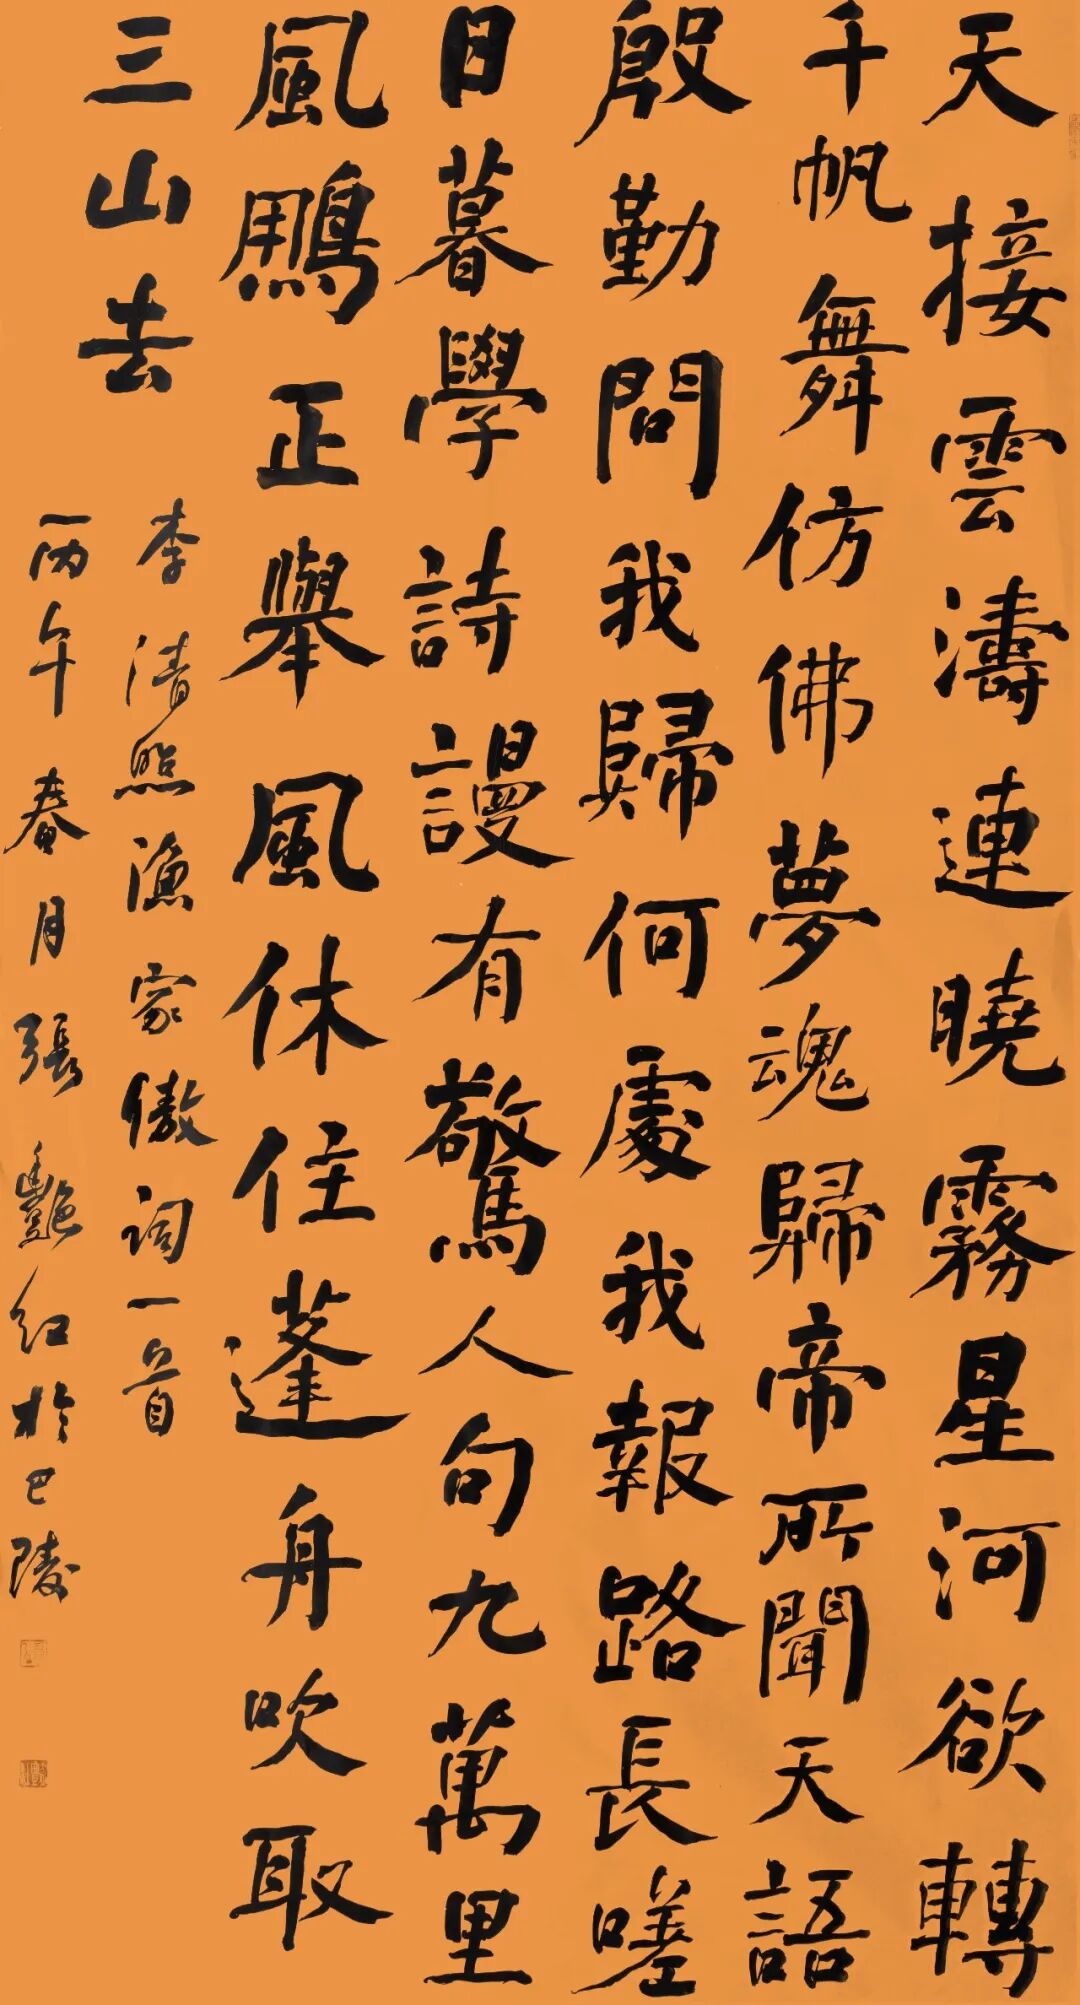 天接雲濤連曉霧星河欲轉
千帆舞仿佛夢魂歸帝所聞天語
殷勤問我歸何處我報路長嗟
日暮學詩謾有驚人句九萬里
風鵬正舉風休住蓬舟吹取
三山去
李清照漁家傲詞一首
丙午春月張艷紅於巴陵